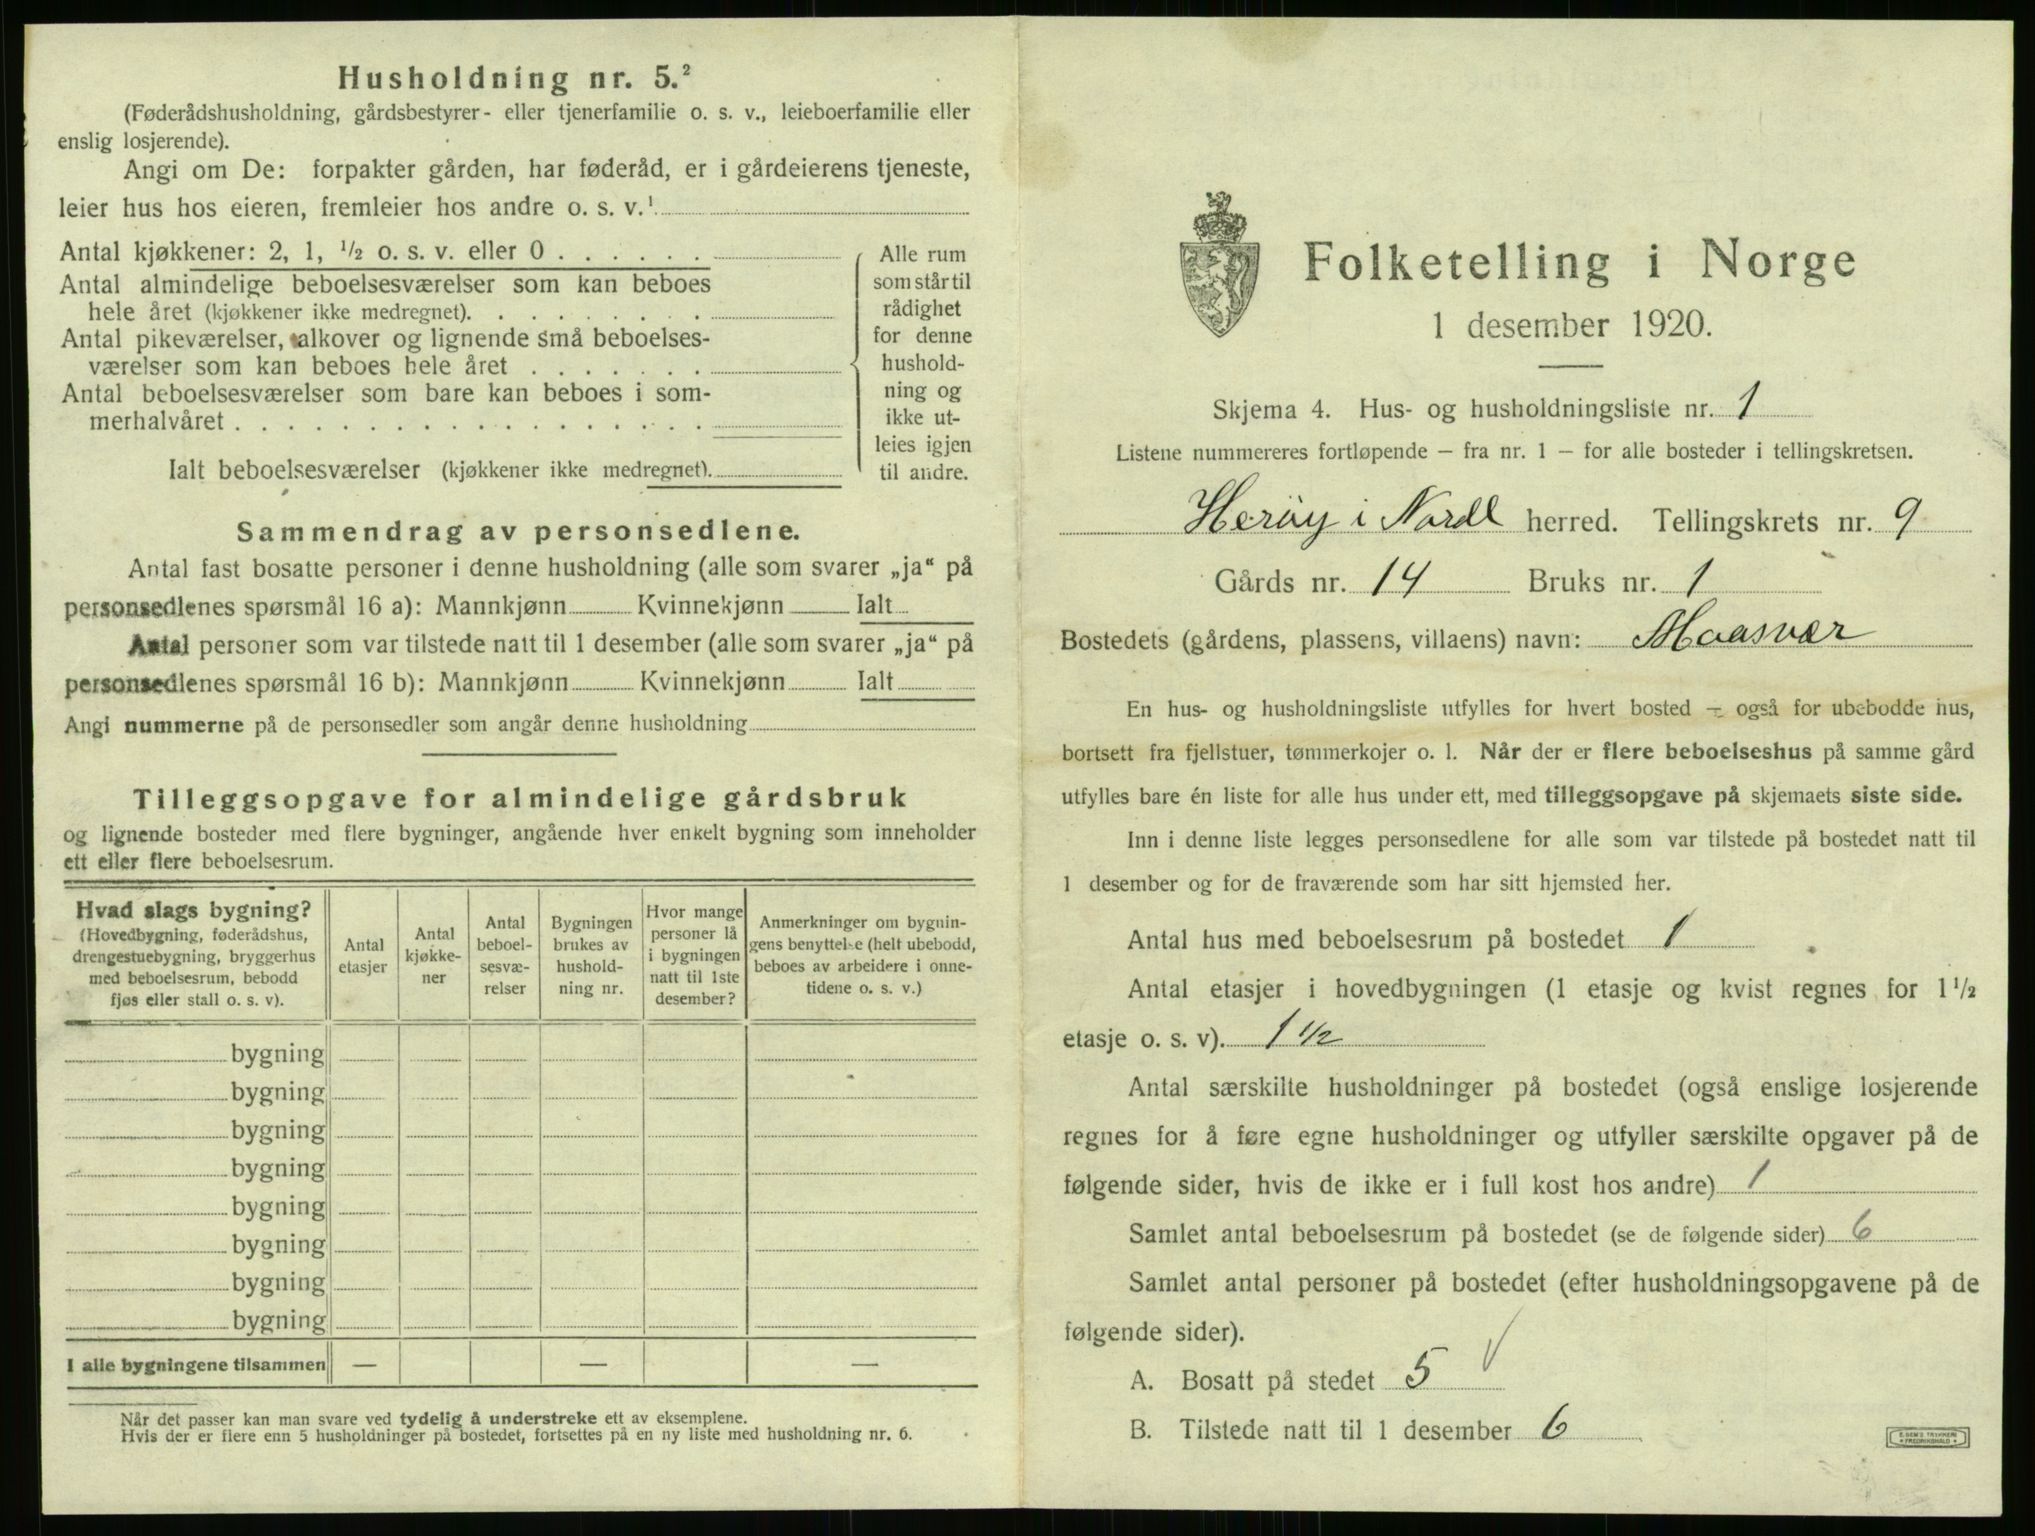 Husholdning nr. 5.²
(Føderådshusholdning, gårdsbestyrer- eller tjenerfamilie o. s. v., leieboerfamilie eller
enslig losjerende).
Angi om De: forpakter gården, har føderåd, er i gårdeierens tjeneste,
leier hus hos eieren, fremleier hos andre o. s. v.¹
Antal kjøkkener: 2, 1, ½ o. s. v. eller 0 . . . . . .
Antal almindelige beboelsesværelser som kan beboes
hele året (kjøkkener ikke medregnet). . . . . . . . .
Antal pikeværelser, alkover og lignende små beboelses-
værelser som kan beboes hele året . . . . . . .
Antal beboelsesværelser som bare kan beboes i som-
merhalvåret . . . . . . . . . . . . . . . . . .
Ialt beboelsesværelser (kjøkkener ikke medregnet).
Alle rum
som står til
rådighet
for denne
hushold-
ning og
ikke ut-
leies igjen
til andre.
Sammendrag av personsedlene.
Antal fast bosatte personer i denne husholdning (alle som svarer „ja“ på
personsedlenes spørsmål 16 a): Mannkjønn Kvinnekjønn Ialt
Antal personer som var tilstede natt til 1 desember (alle som svarer „ja“ på
personsedlenes spørsmål 16 b): Mannkjønn Kvinnekjønn Ialt
Angi nummerne på de personsedler som angår denne husholdning
Tilleggsopgave for almindelige gårdsbruk
og lignende bosteder med flere bygninger, angående hver enkelt bygning som inneholder
ett eller flere beboelsesrum.
Hvad slags bygning?
(Hovedbygning, føderådshus,
drengestuebygning, bryggerhus
med beboelsesrum, bebodd
fjøs eller stall o. s. v).
Antal
etasjer
Antal
kjøkke-
ner
Antal
beboel-
sesvæ-
relser
Bygningen
brukes av
hushold-
ning nr.
Hvor mange
personer lå
i bygningen
natt til 1ste
desember?
Anmerkninger om bygnin-
gens benyttelse (helt ubebodd,
beboes av arbeidere i onne-
tidene o. s. v.)
bygning
bygning
bygning
bygning
bygning
bygning
bygning
bygning
I alle bygningene tilsammen — — —
Når det passer kan man svare ved tydelig å understreke ett av eksemplene.
Hvis der er flere enn 5 husholdninger på bostedet, fortsettes på en ny liste med husholdning nr. 6.
Folketelling i Norge
1 desember 1920.
Skjema 4. Hus- og husholdningsliste nr. 1
Listene nummereres fortløpende – fra nr. 1 – for alle bosteder i tellingskretsen.
Herøy i Nordl herred. Tellingskrets nr. 9
Gårds nr. 14 Bruks nr. 1
Bostedets (gårdens, plassens, villaens) navn: Maasvær
En hus- og husholdningsliste utfylles for hvert bosted – også for ubebodde hus,
bortsett fra fjellstuer, tømmerkojer o. l. Når der er flere beboelseshus på samme gård
utfylles bare én liste for alle hus under ett, med tilleggsopgave på skjemaets siste side.
Inn i denne liste legges personsedlene for alle som var tilstede på bostedet natt til
1 desember og for de fraværende som har sitt hjemsted her.
Antal hus med beboelsesrum på bostedet 1
Antal etasjer i hovedbygningen (1 etasje og kvist regnes for 1½
etasje o. s. v). 1 ½
Antal særskilte husholdninger på bostedet (også enslige losjerende
regnes for å føre egne husholdninger og utfyller særskilte opgaver på de
følgende sider, hvis de ikke er i full kost hos andre) 1
Samlet antal beboelsesrum på bostedet (se de følgende sider) 6
Samlet antal personer på bostedet (efter husholdningsopgavene på de
følgende sider).
A. Bosatt på stedet 5 ✓
B. Tilstede natt til 1 desember 6